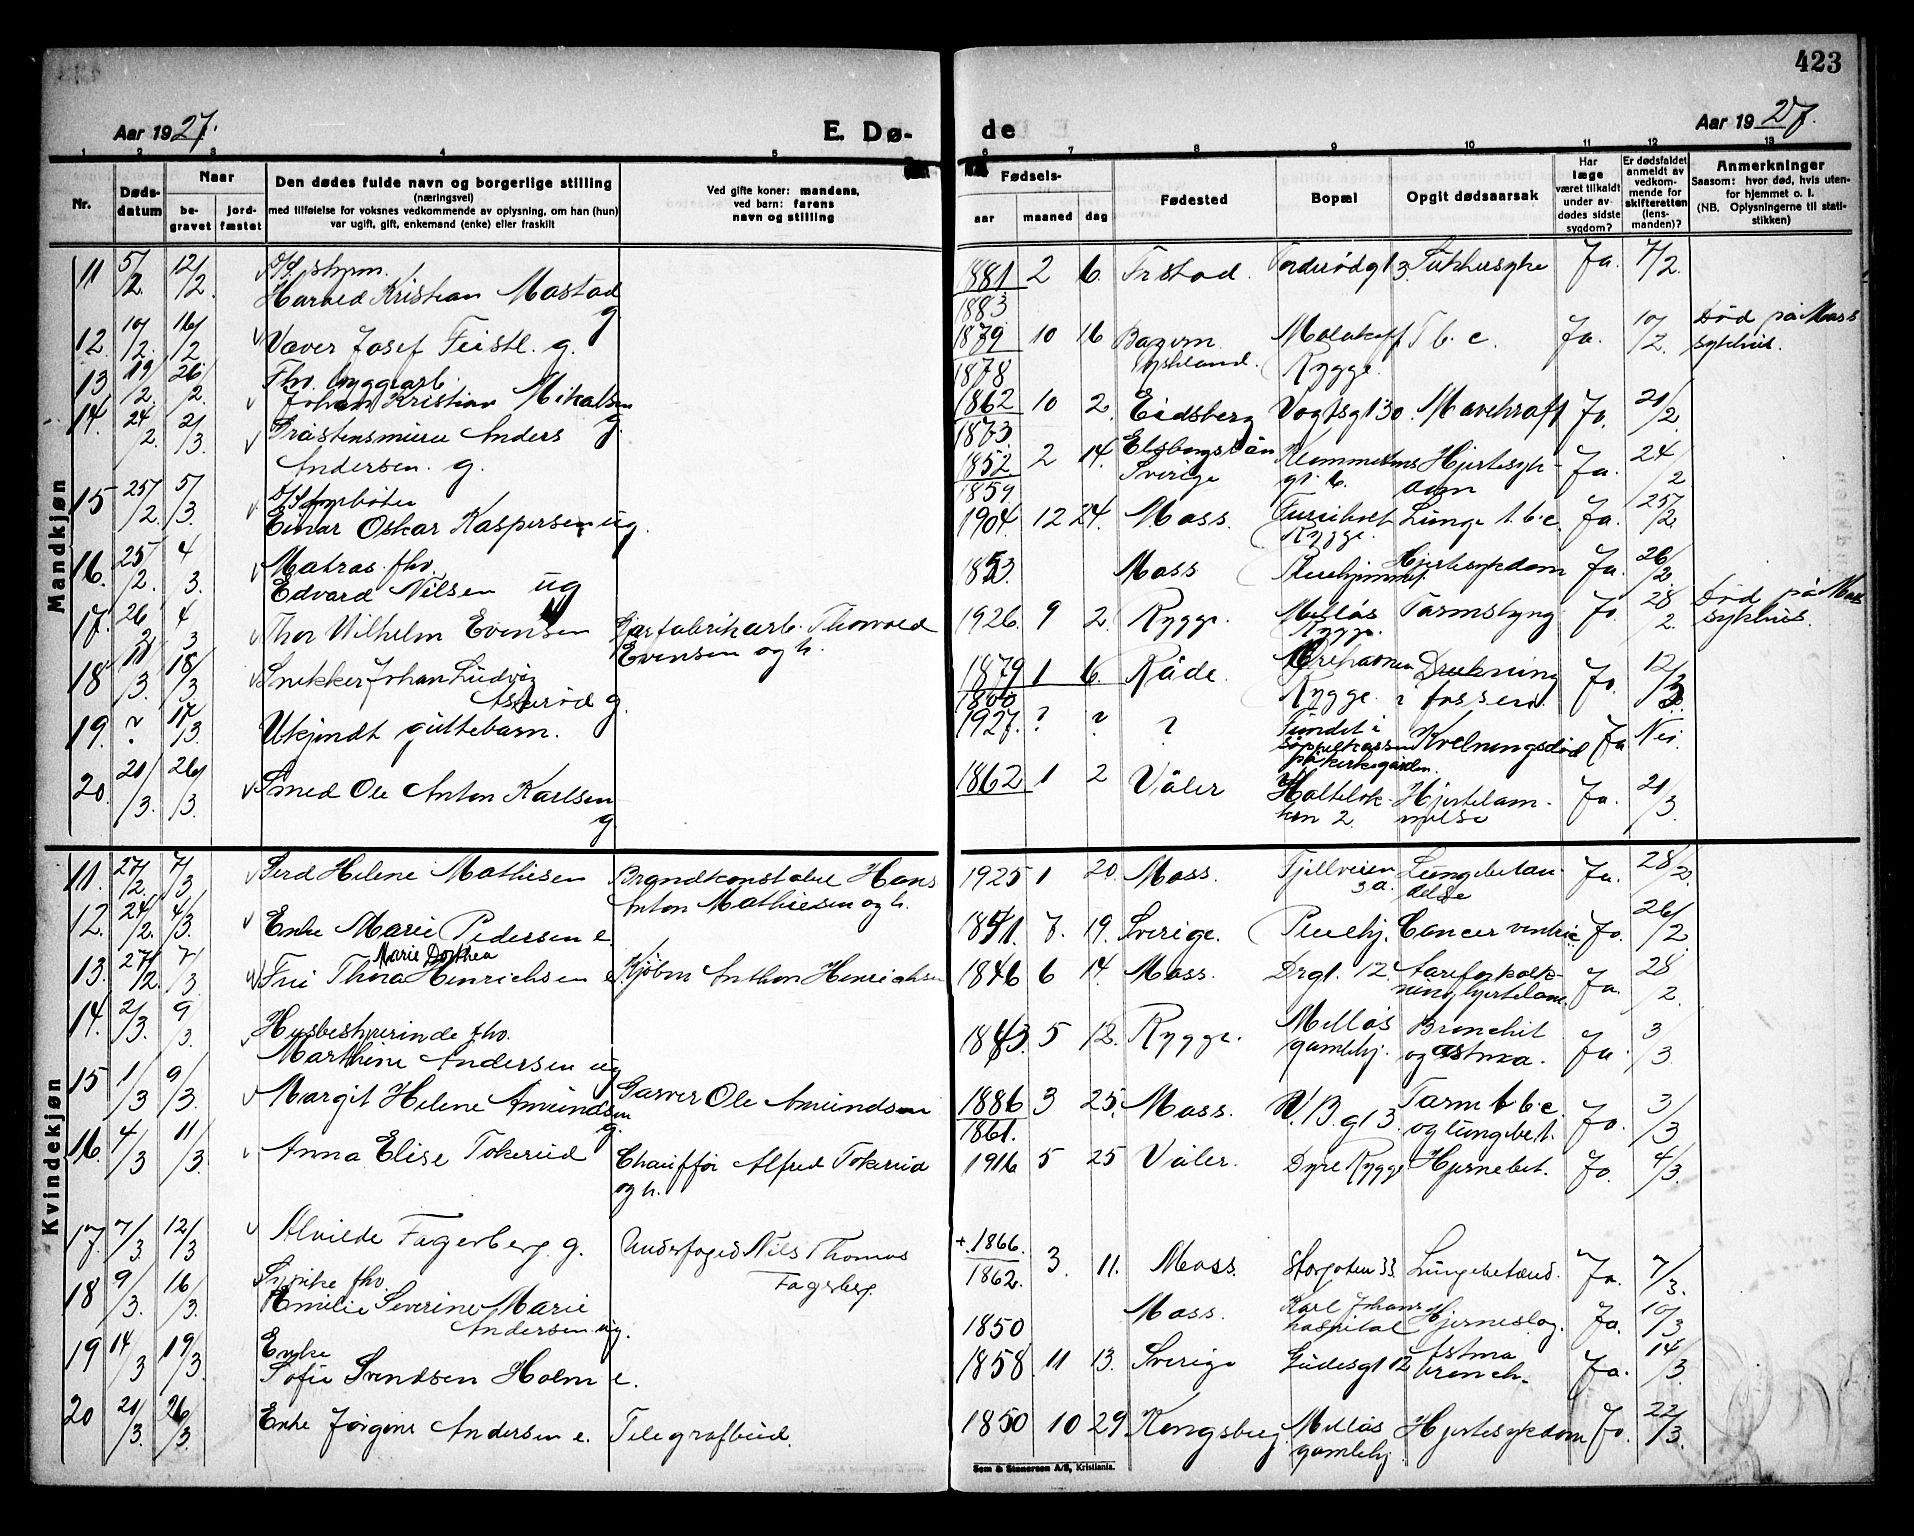 423
Aar 1927.
E. Dø-
de
Aar 1927.
1 2 3 4 5 6 7 8 9 11 10 12 13
Nr.
Døds-
datum
Naar
be-
gravet
jord-
fæstet
Den dødes fulde navn og borgerlige stilling
(næringsvei)
med tilføielse for voksnes vedkommende av oplysning, om han (hun)
var ugift, gift, enkemand (enke) eller fraskilt
Ved gifte koner: mandens,
ved barn: farens
navn og stilling
Fødsels-
aar
maaned
dag
Fødested
Bopæl
Opgit dødsaarsak
Har
læge
været tilkaldt
under av-
dødes sidste
sygdom?
Er dødsfaldet
anmeldt av
vedkom-
mende for
skifteretten
(lens-
manden)?
Anmerkninger
Saasom: hvor død, hvis uten-
for hjemmet o. l.
(NB. Oplysningerne til stati-
stikken)
Mandkjøn
11 5/2 12/2 Harald Kristian Mostad g 1881 2 6. Frstad. Ja. 7/2.
1883
12. 10/2. 16/2 Xaver Josef Feistl. g. 1879 10 16 Bayern Tyskland. Malakoff Rygge. T b. c. Ja. 10/2. Død på Moss sykehus.
1878
13 19/2. 26/2. Fhv. byggearb. Johan Kristian Mikalsen g. 1862 10 2. Eidsberg Vogtsgt 30. Mavekraft Ja. 21/2
1873.
14. 24/2. 2/3. Anders Andersen. g. 1852 2 14. Sverige Hjertesyk- dom Ja. 24/2
1859.
15 25/2. 5/3. Einar Oskar Kaspersen ug. 1904 12 24. Moss. Rygge. Lunge t. b. c. Ja. 25/2
16. 25/2. 4/3. Matros. fhv. Edvard Nilsen ug 1853. Moss Pleiehjemmet. Hjertesykdom Ja. 26/2
17. 26/2 4/3 Thor Wilhelm Evensen Thorvald Evensen og h. 1926. 9 2. Rygge. Melløs Rygge. Tarmslyng Ja. 28/2. Død på Moss sykhus.
18 11/3. 18/3 Snekker Johan Ludvig g. 1879 1 6. Råde. Rygge. Drukning i fossen. Ja. 12/3.
1860
19. ? 17/3. Ukjendt guttebarn. 1927. ? ? ? Fundet i søppelkassen på kirkegården. Kvelningsdød Ja Nei.
20. 21/3. 26/3 Smed Ole Anton Karlsen g. 1862 1 2 Våler Hjertelam- melse Ja. 21/3.
Kvindekjøn
11. 27/2. 7/3 Berd Helene Mathisen Brandkonstabel Hans Anton Mathiesen og h. 1925 1 20. Moss. Fjellveien 3a. Lungebetæn- delse Ja. 28/2.
12. 24/2. 4/3. Enke Marie Pedersen e. 1841. 7. 19. Sverige. Pleiehj. Cancer ventric. Ja. 26/2
13. 27/2. 7/3 Fru Thora Marie Dorthea Henrichsen e. Kjøbm Anthon Henrichsen 1846 6 14. Moss. Drgt. 12. Aareforkalk- ning hjertelam. Ja. 28/2.
14. 2/3. 9/3. Husbestyrerinde fhv. Marthine Andersen ug 1843. 5 12. Rygge. Melløs gamlehj. Bronchit og astma. Ja. 3/3.
15 1/3 9/3. Margit Helene Amundsen g. Garver Ole Amundsen 1886 3 25. Moss. V. B. gt 3. Tarm t b c. og lungebet. Ja. 3/3
1861.
16. 4/3 11/3. Anna Elise Tokerud Chauffør Alfred Tokerud og h. 1916 5 25 Våler. Dyre Rygge Hjernebet. Ja. 4/3.
17. 7/3 12/3 Alvilde Fagerberg. g. Underfoged Nils Thomas Fagerberg. +.1866. 3. 11. Moss. Storgaten 33. Lungebetænd. Ja. 7/3.
1862.
18 9/3. 16/3. fhv. Emilie Severine Marie Andersen ug. 1850 Moss. Karl Johans hospital Hjerneslag. Ja. 10/3
19 14/3 19/3. Enke Sofie Svendsen Holm e. 1858. 11 13. Sverige Gudesgt 12 Astma bronch. Ja. 14/3.
20 21/3. 26/3 Enke Jørgine Andersen e. Telegrafbud. 1850 10 29 Kongsberg. Melløs gamlehj. Hjertesykdom Ja. 22/3.
Sem & Stenersen A/S, Kristiania.